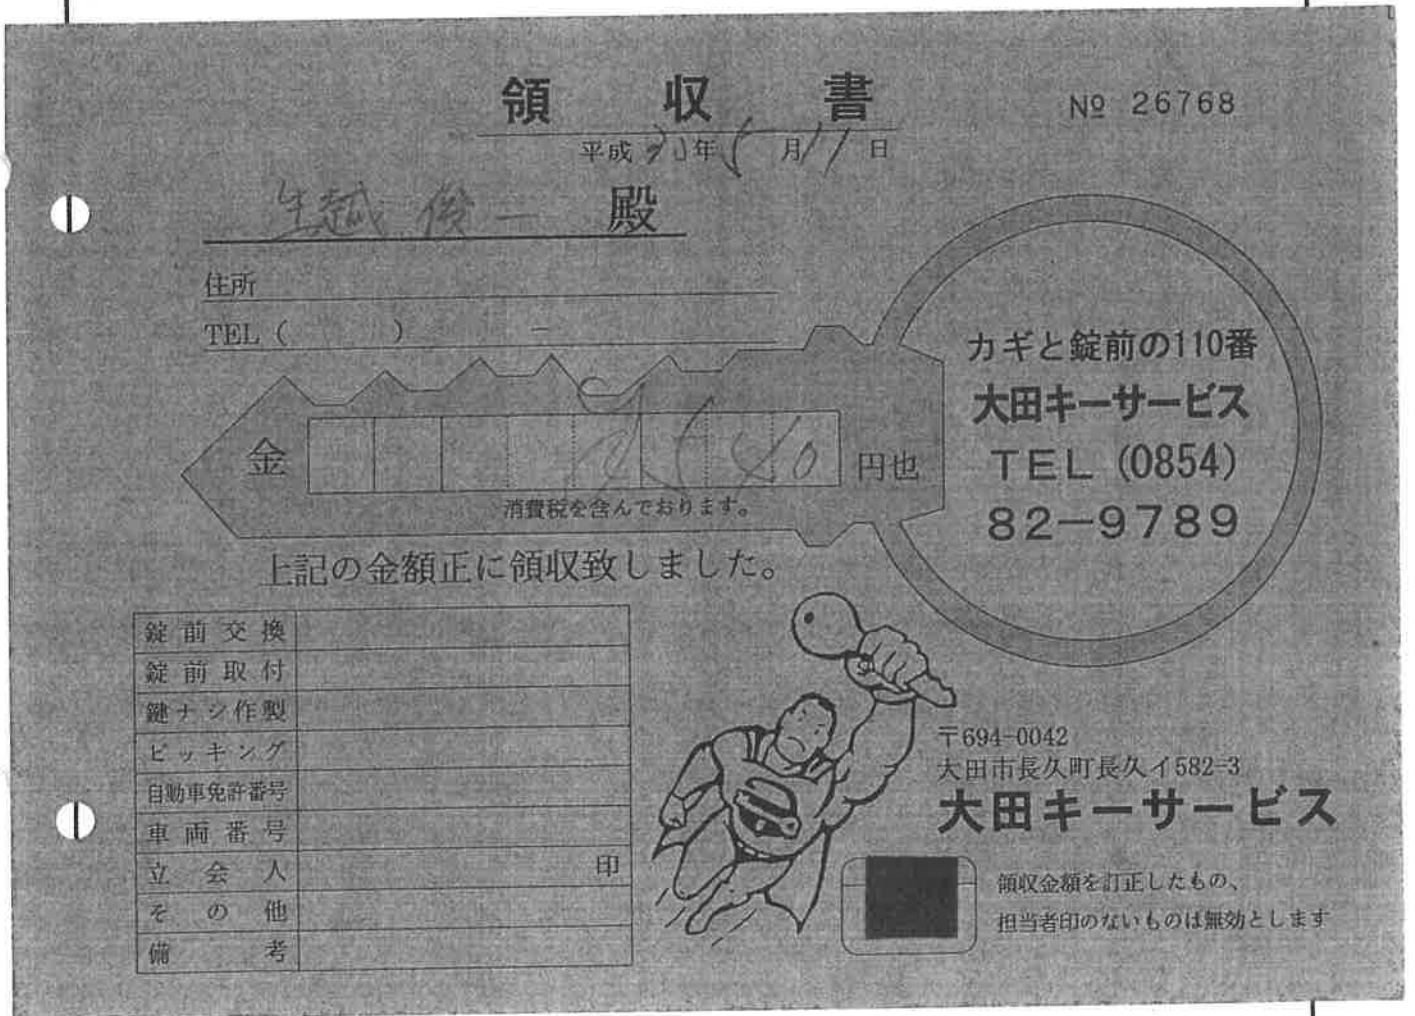 領収書
№ 26768
平成30年5月11日
生越 俊一 殿
住所
TEL ( ) －
金 円也
消費税を含んでおります。
上記の金額正に領収致しました。
カギと錠前の110番
大田キーサービス
TEL (0854)
82－9789
錠前交換
錠前取付
鍵ナシ作製
ピッキング
自動車免許番号
車両番号
立会人 印
その他
備考
〒694-0042
大田市長久町長久イ582-3
大田キーサービス
領収金額を訂正したもの、
担当者印のないものは無効とします